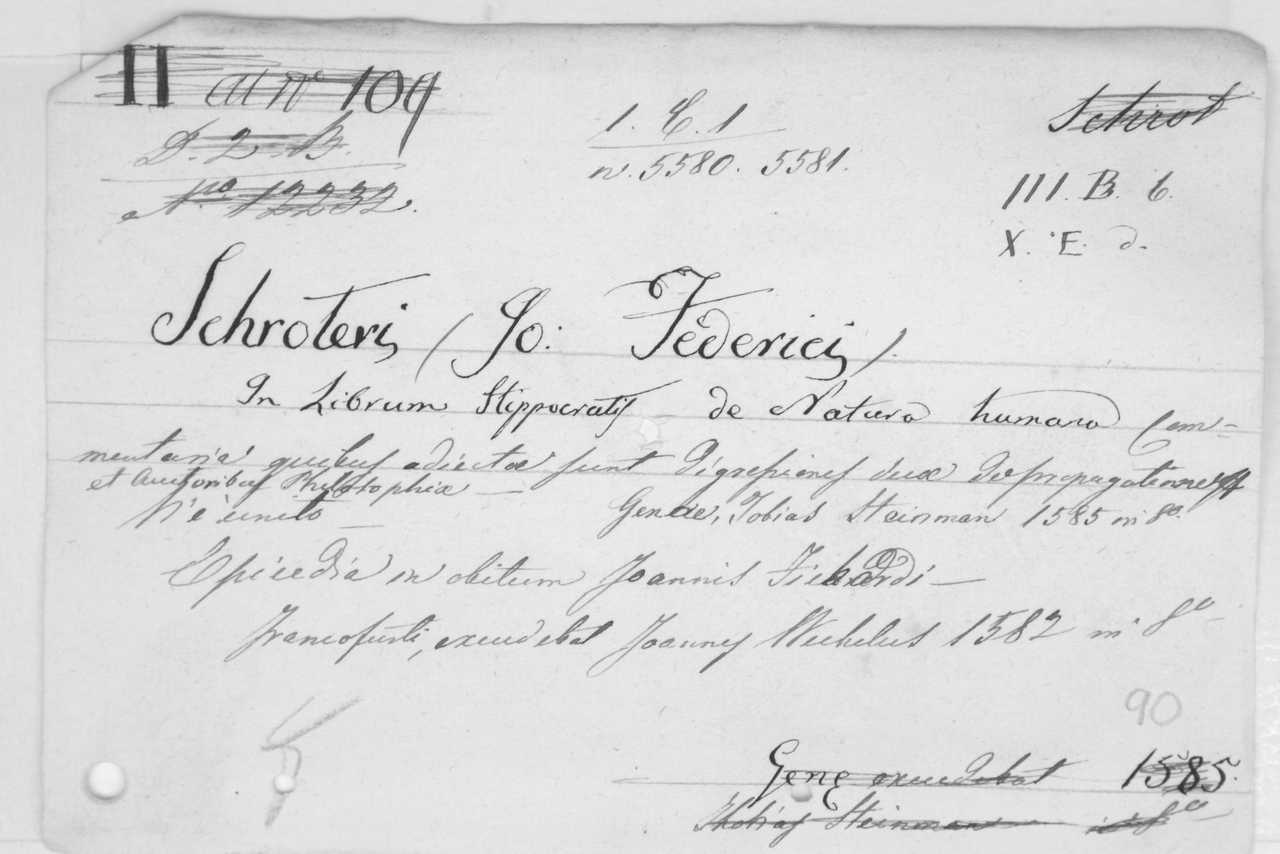 II al nº 109
D. 2. B.
Nº 12232.
1. C. 1
n. 5580. 5581.
Schrot
III. B. 6.
X. E. d.
Schroteri (Jo: Federici).
In Librum Hippocratis de Natura humana Com-
mentaria quibus adiectae sunt digressiones duae de propagatione
et Auctoribus Philosophiae —
V'è unito — Genae, Tobias Steinman 1585 in 8º.
Epicedia in obitum Joannis Fichardi —
Francofurti, excudebat Joannes Wechelus 1582 in 8º -
90
Gene excudebat 1585.
Thobias Steinman in 8º -